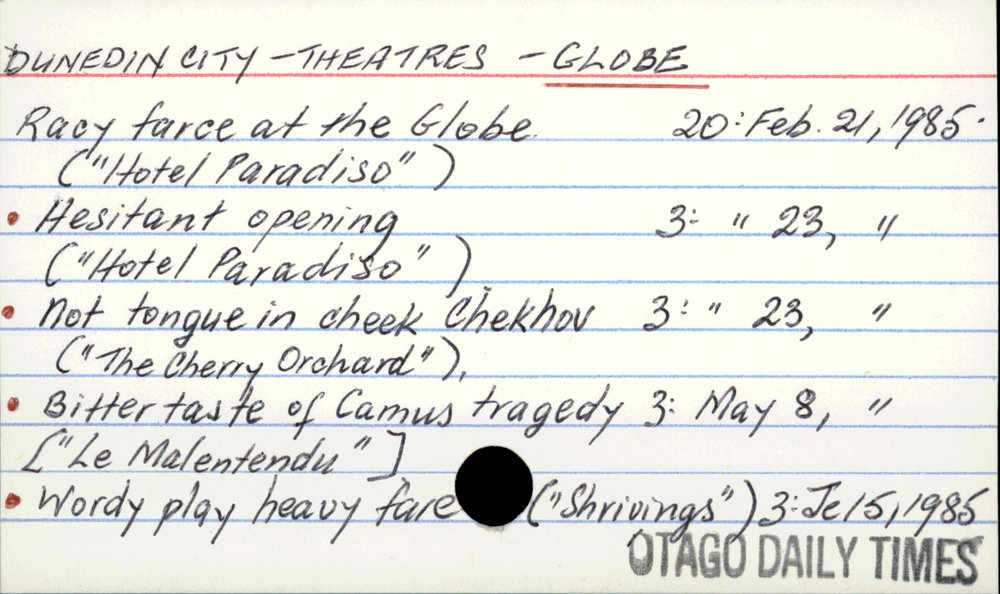 DUNEDIN CITY - THEATRES - GLOBE
Racy farce at the Globe. 20: Feb. 21, 1985.
("Hotel Paradiso")
• Hesitant opening 3: " 23, "
("Hotel Paradiso").
• Not tongue in cheek Chekhov 3: " 23, "
("The Cherry Orchard").
• Bitter taste of Camus tragedy 3: May 8, "
["Le Malentendu"]
• Wordy play heavy fare ("Shrivings") 3: Je 15, 1985
OTAGO DAILY TIMES